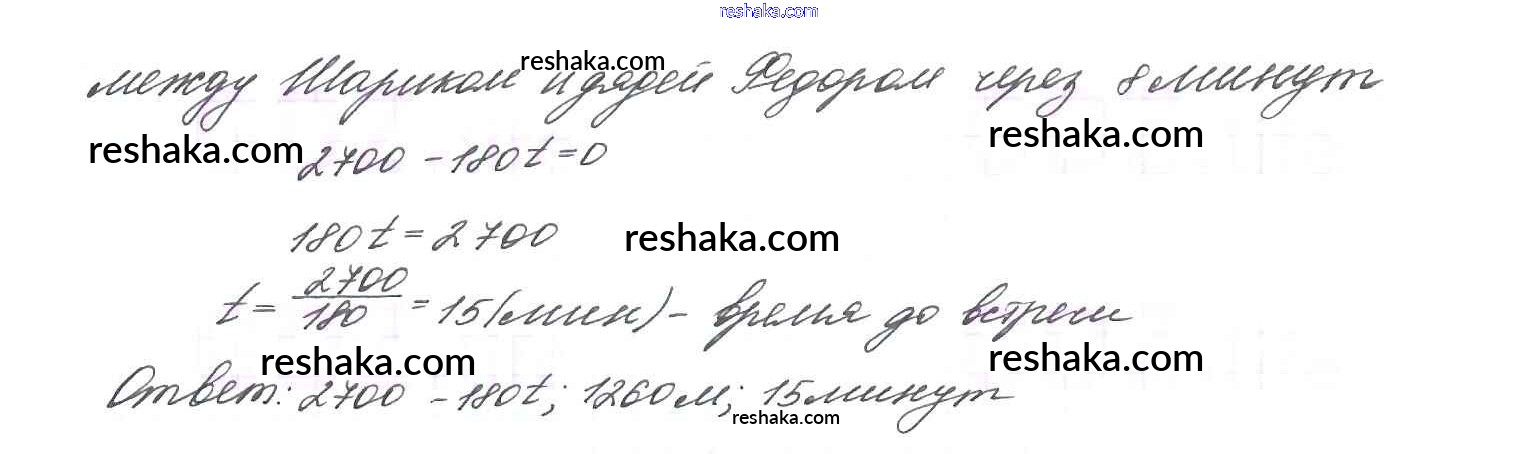 reshaka.com
reshaka.com
между Шариком и дядей Федором через 8 минут
reshaka.com
reshaka.com 2700 - 180t = 0
180t = 2700 reshaka.com
t = 2700/180 = 15 (мин) - время до встречи
reshaka.com reshaka.com
Ответ: 2700 - 180t; 1260 м; 15 минут
reshaka.com